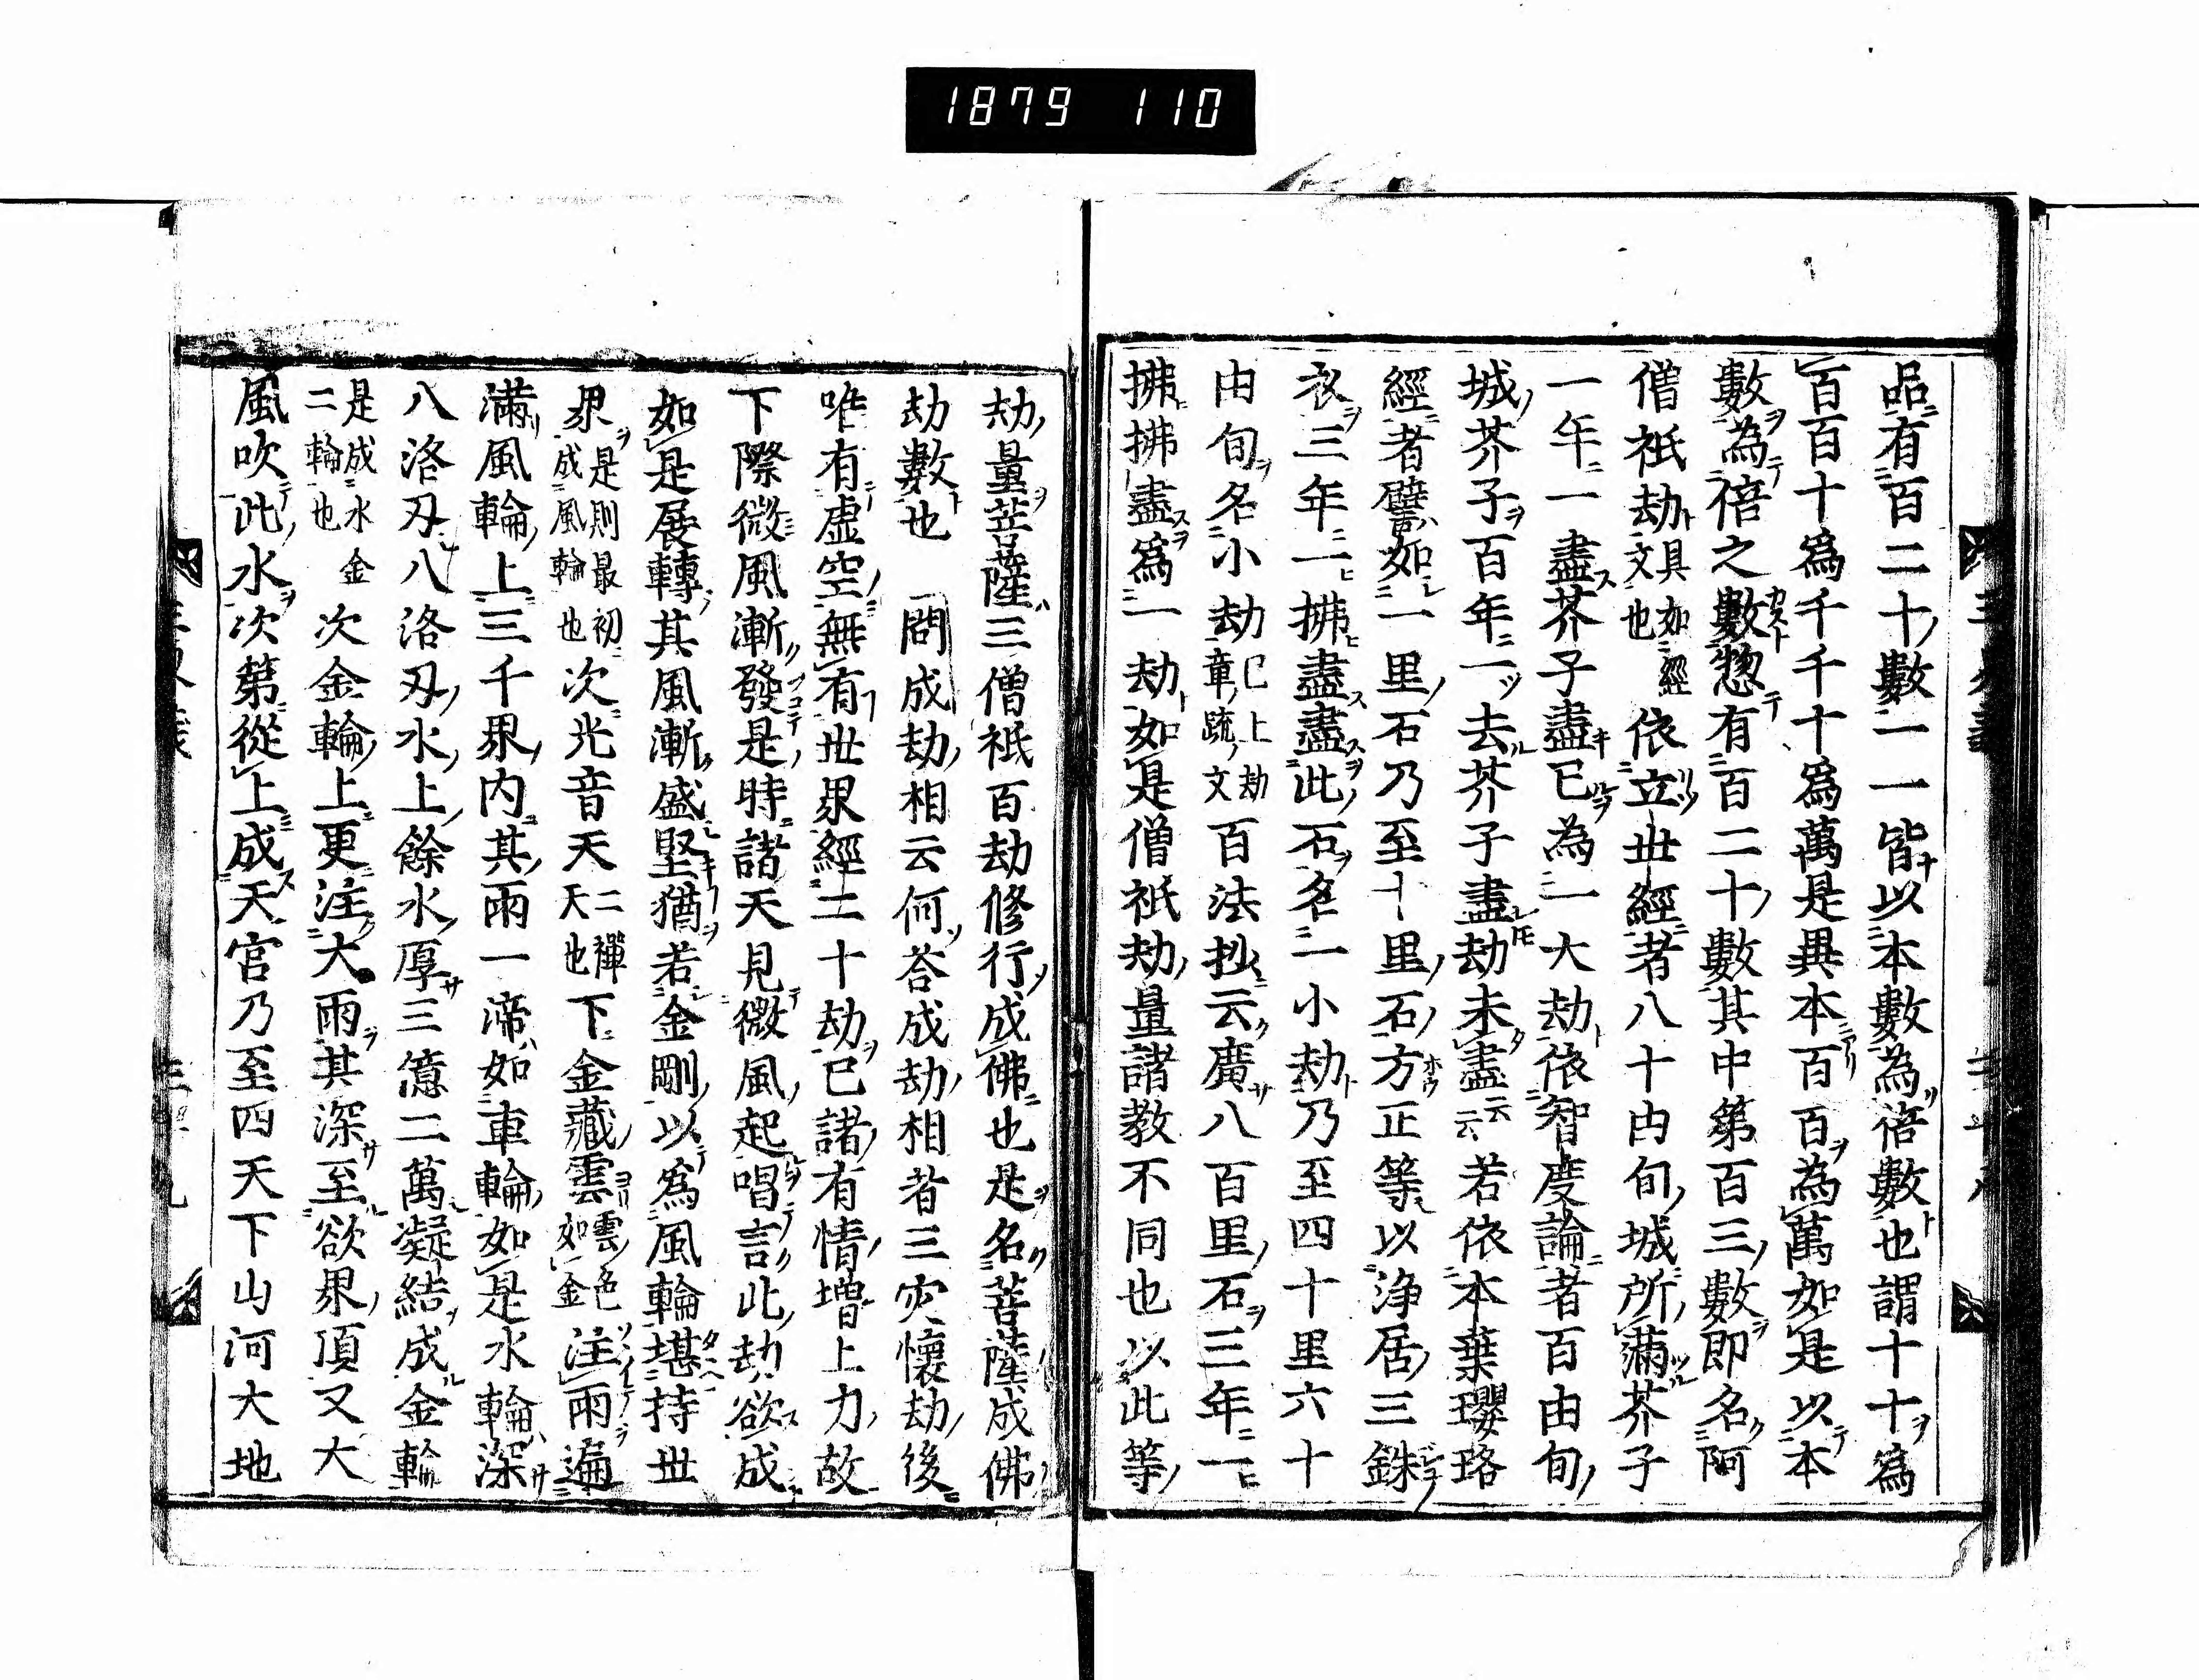 1879 110
品有百二十數一一皆以本數為倍數也謂十十為
百百十為千千十為萬是異本百百為萬如是以本
數為倍之數惣有百二十數其中第百三數即名阿
僧祇劫具如經文也依立世經者八十由旬城所滿芥子
一年一盡芥子盡已為一大劫依智度論者百由旬
城芥子百年一去芥子盡劫未盡云云若依本葉瓔珞
經者譬如一里石乃至十里石方正等以淨居三銖
衣三年一拂盡盡此石名一小劫乃至四十里六十
由旬名小劫已上劫章疏文百法抄云廣八百里石三年一
拂拂盡為一劫如是僧祇劫量諸教不同也以此等
劫量菩薩三僧祇百劫修行成佛也是名菩薩成佛
劫數也 問成劫相云何荅成劫相者三灾懷劫後
唯有虛空無有世界經二十劫已諸有情增上力故
下際微風漸發是時諸天見微風起唱言此劫欲成
如是展轉其風漸盛堅猶若金剛以為風輪堪持世
界是則最初成風輪也次光音天二禪天也下金藏雲雲色如金注雨遍
滿風輪上三千界內其雨一渧如車輪如是水輪深
八洛刄八洛刄水上餘水厚三億二萬凝結成金輪
是成成水金二輪也次金輪上更注大雨其深至欲界頂又大
風吹此水次第從上成天宮乃至四天下山河大地